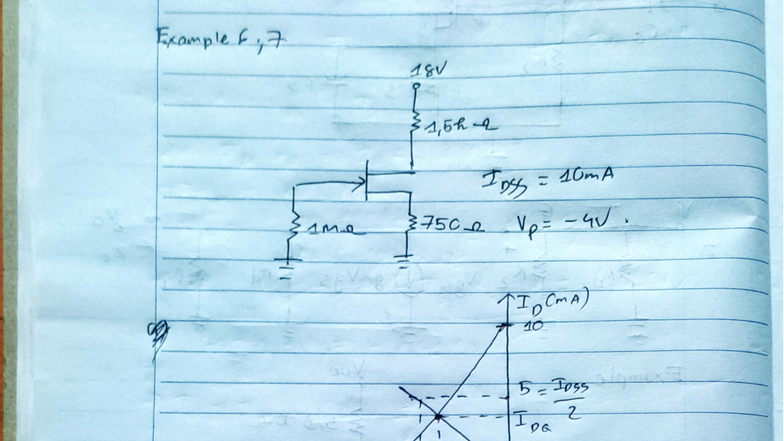 Example 6,7
18V
1,5k Ω
I_DSS = 10mA
1MΩ
750Ω
Vp = -4V.
I_D(mA)
10
5 = I_DSS/2
I_DQ